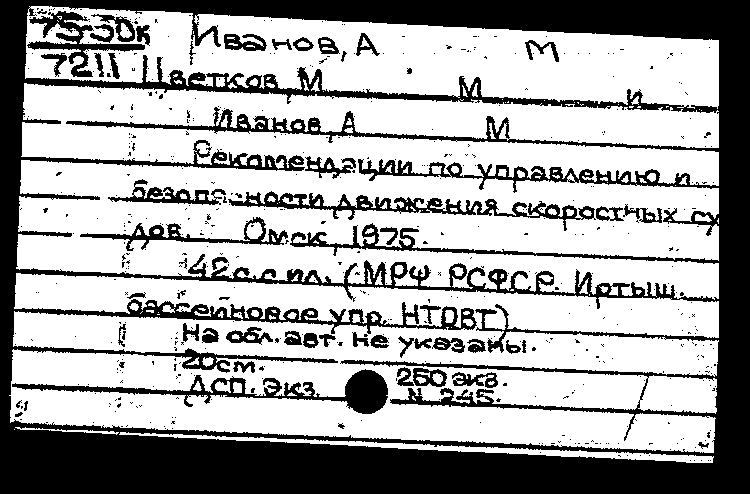 75-50к Иванов, А М
7211 Цветков, М М и
Иванов, А М
Рекомендации по управлению и
безопасности движения скоростных су
дов. Омск, 1975.
42с. с ил. (МРФ РСФСР. Иртыш.
бассейновое упр. НТОВТ)
На обл. авт. не указаны.
20см. 250 экз.
ДСП. Экз. N 245.